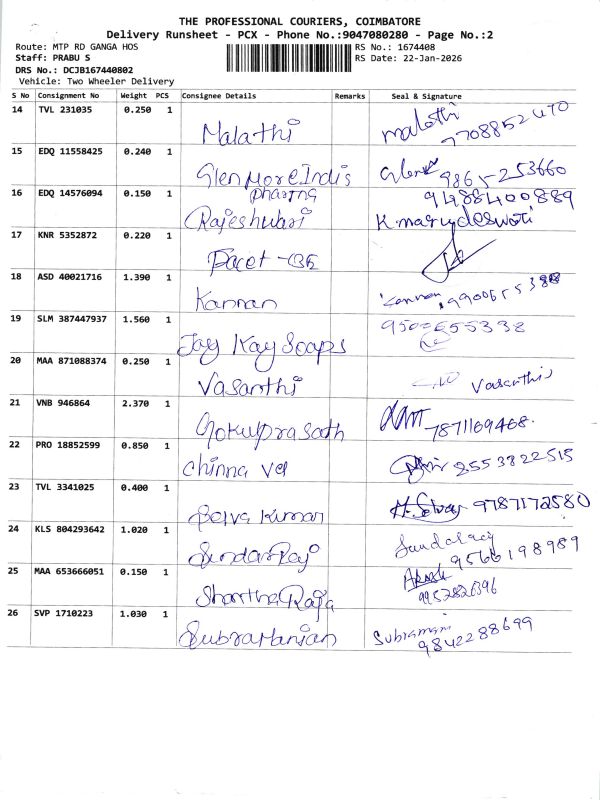 THE PROFESSIONAL COURIERS, COIMBATORE
Delivery Runsheet - PCX - Phone No.:9047080280 - Page No.:2
Route: MTP RD GANGA HOS RS No.: 1674408
Staff: PRABU S RS Date: 22-Jan-2026
DRS No.: DCJB167440802
Vehicle: Two Wheeler Delivery
S No Consignment No Weight PCS Consignee Details Remarks Seal & Signature
14 TVL 231035 0.250 1 Malathi malathi
15 EDQ 11558425 0.240 1 Glenmore Indis 98653660
pharma
16 EDQ 14576094 0.150 1 Rajeshwari 9488400889
17 KNR 5352872 0.220 1 Pacet - CBE
18 ASD 40021716 1.390 1 Kannan Kannan
19 SLM 387447937 1.560 1 Jay Kay Soaps
20 MAA 871088374 0.250 1 Vasanthi Vasanthi
21 VNB 946864 2.370 1 Gokulprasath 7871169468.
22 PRO 18852599 0.850 1 Chinna vel 2553822515
23 TVL 3341025 0.400 1 Selva Kumar 9787172580
24 KLS 804293642 1.020 1 SundarRaj 9566198989
25 MAA 653666051 0.150 1 Shantha Raja Akash
9952820396
26 SVP 1710223 1.030 1 Subramanian Subramani
9842288699